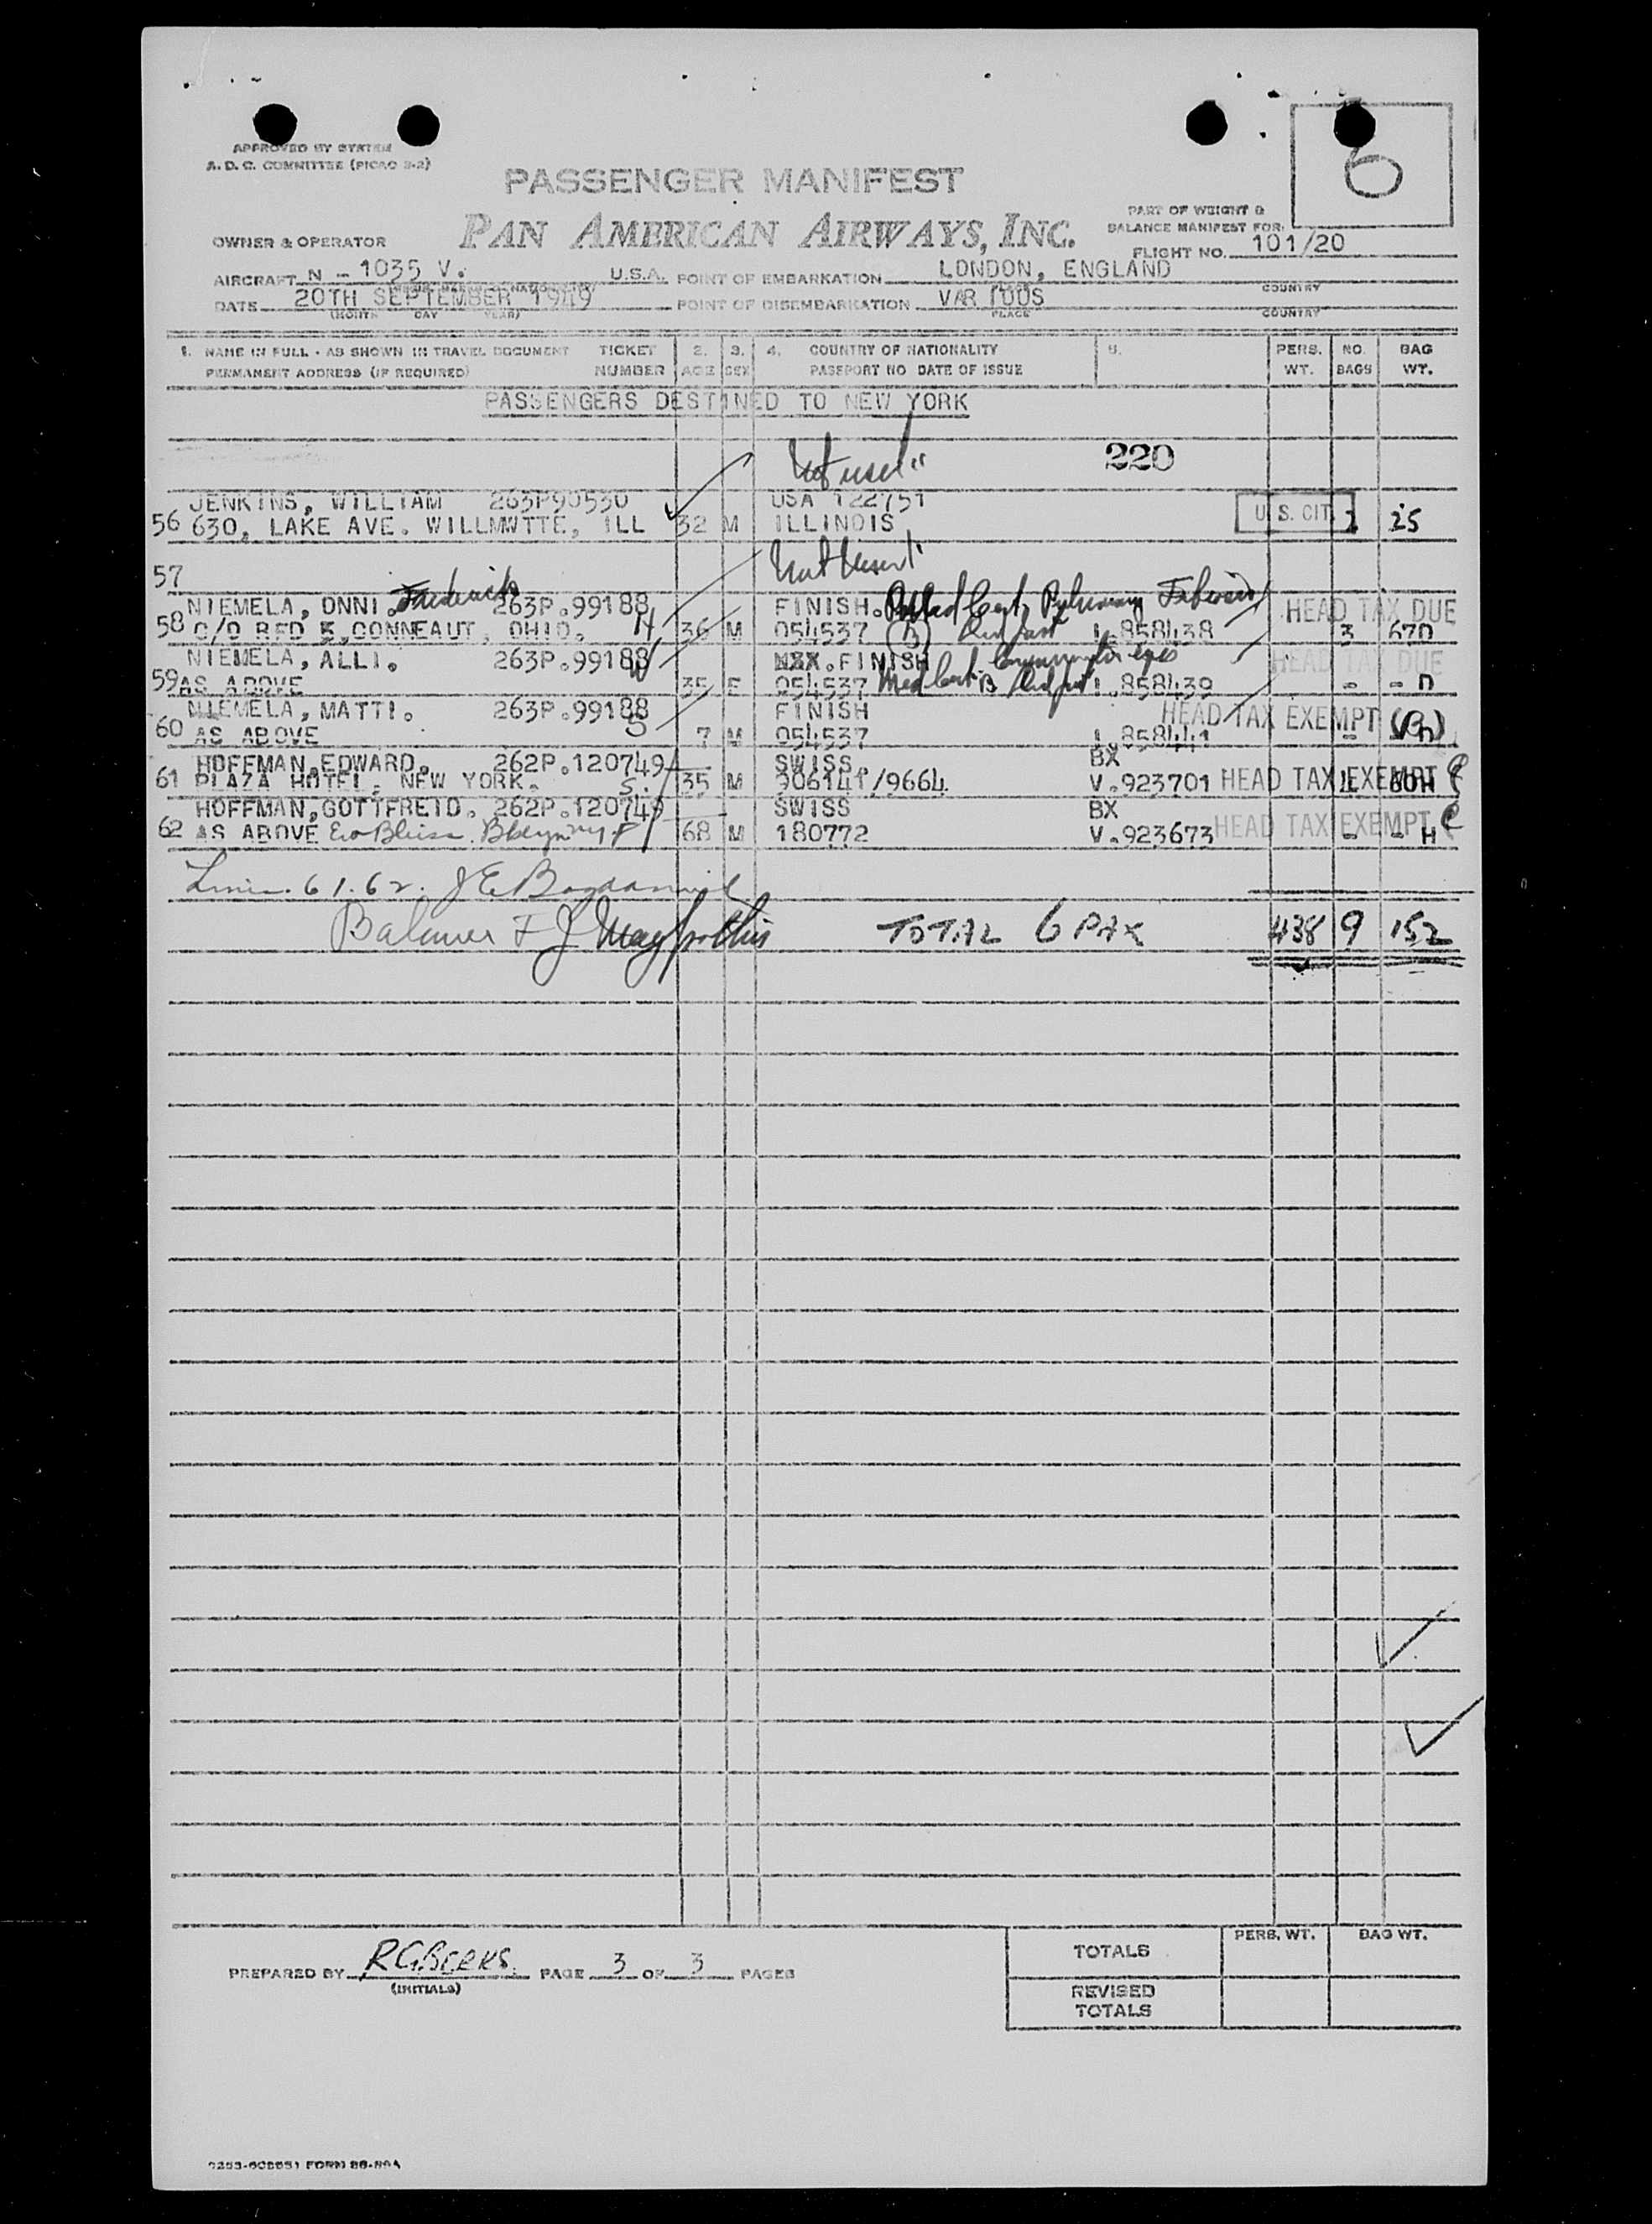 APPROVED BY SYSTEM
A. D. C. COMMITTEE (PICAO 9-2)
6
PASSENGER MANIFEST
PAN AMERICAN AIRWAYS, INC.
OWNER & OPERATOR
PART OF WEIGHT &
BALANCE MANIFEST FOR:
FLIGHT NO. 101/20
AIRCRAFT N - 1035 V. U.S.A. POINT OF EMBARKATION LONDON, ENGLAND
COUNTRY
DATE 20TH SEPTEMBER 1949 POINT OF DISEMBARKATION VARIOUS
(MONTH DAY YEAR) PLACE COUNTRY
1. NAME IN FULL - AS SHOWN IN TRAVEL DOCUMENT TICKET 2. 3. 4. COUNTRY OF NATIONALITY 5. PERS. NO. BAG
PERMANENT ADDRESS (IF REQUIRED) NUMBER AGE SEX PASSPORT NO DATE OF ISSUE WT. BAGS WT.
PASSENGERS DESTINED TO NEW YORK
Not used" 220
JENKINS, WILLIAM 263P90530 USA 122751
56 630, LAKE AVE. WILLMWTTE, ILL 32 M ILLINOIS U. S. CIT. 25
57 Not Used"
NIEMELA, ONNI. Frederick 263P.99188 FINISH. Cert. Pulmonary HEAD TAX DUE
58 C/O RFD 5, CONNEAUT, OHIO. H 36 M 054537 B I.858438 3 67D
NIEMELA, ALLI. 263P.99188 W FINISH HEAD TAX DUE
59 AS ABOVE 35 F 054537 Med Cert B I.858439 - - D
NIEMELA, MATTI. 263P.99188 FINISH HEAD TAX EXEMPT
60 AS ABOVE S 7 M 054537 I.858441 -
HOFFMAN, EDWARD. 262P.120749 SWISS. BX
61 PLAZA HOTEL, NEW YORK. S. 35 M 906141/9664 V.923701 HEAD TAX EXEMPT 4 60H
HOFFMAN, GOTTFREID. 262P.120749 SWISS BX
62 AS ABOVE F 68 M 180772 V.923673 HEAD TAX EXEMPT - - H
61.62.
TOTAL 6 PAX 438 9 152
PREPARED BY PAGE 3 OF 3 PAGES
(INITIALS)
TOTALS PERS. WT. BAG WT.
REVISED
TOTALS